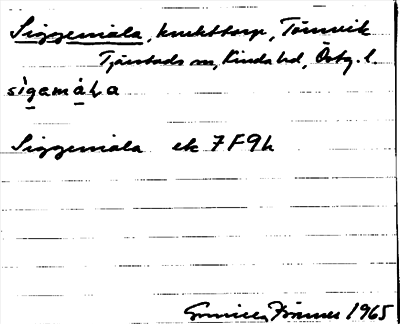 Siggemåla, knekttorp, Tömvik
Tjärstads sn, Kinda hd, Östg. l.
sìgamåla
Siggemåla ek 7F9h
Gunilla 1965